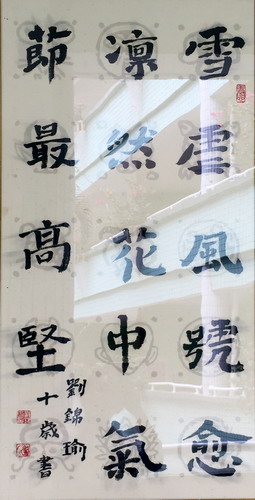 雪虐風號愈
凜然花中氣
節最高堅
劉錦瑜
十歲書